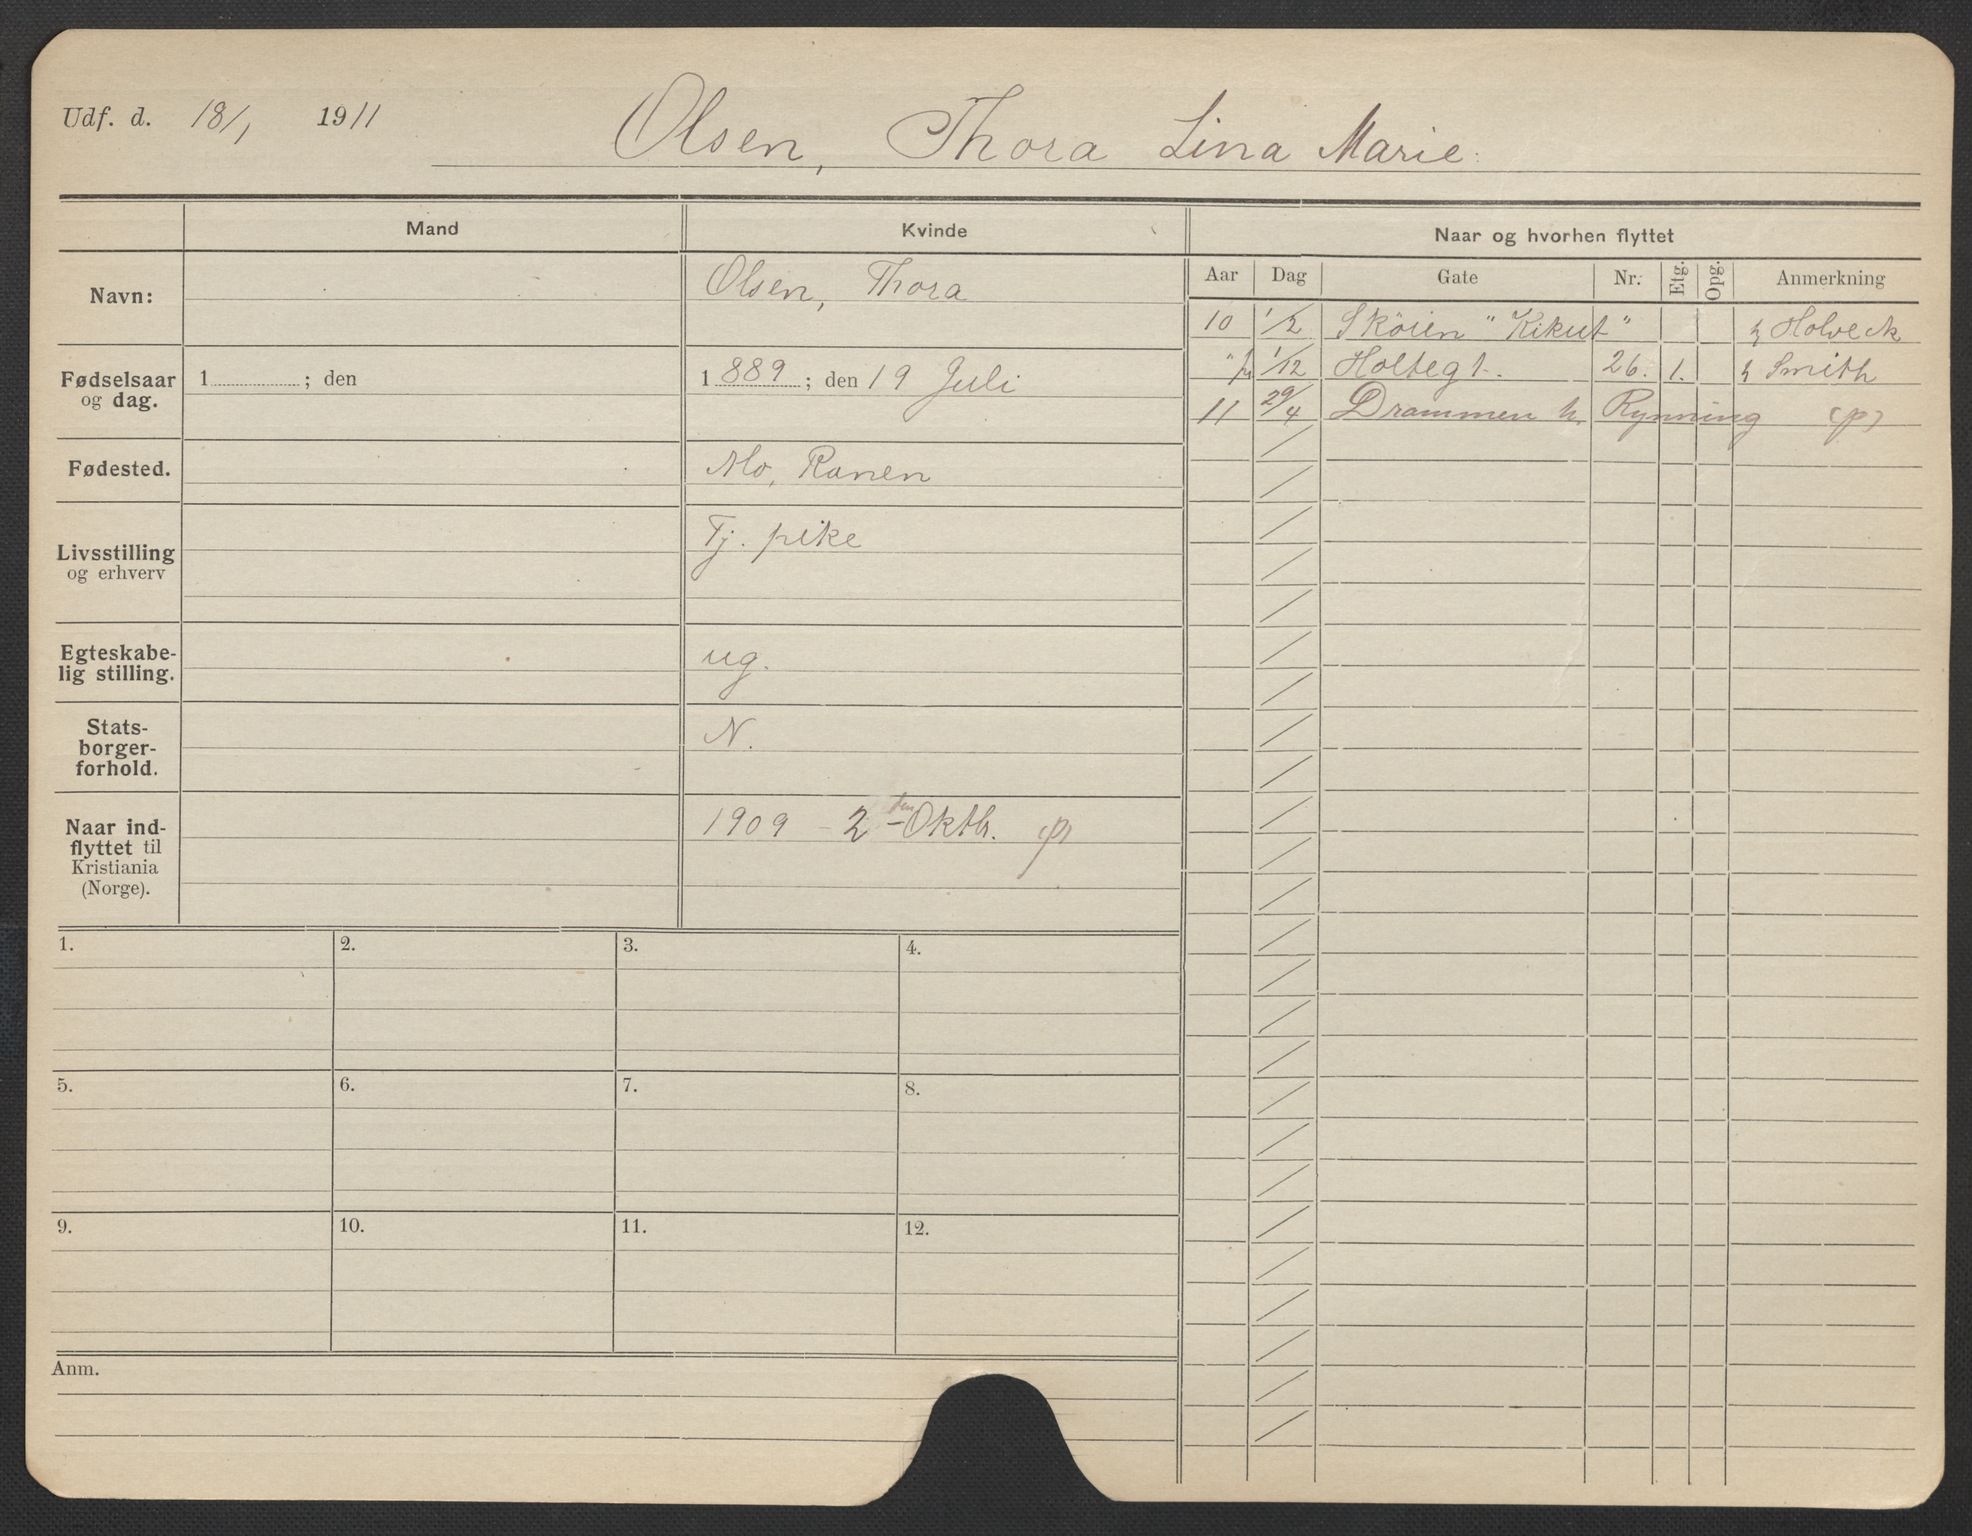 Udf. d. 18/1 1911
Olsen, Thora Lina Marie.
Mand
Kvinde
Naar og hvorhen flyttet
Aar Dag Gate Nr. Etg. Opg. Anmerkning
Navn:
Olsen, Thora
10 1/2 Sköien "Kikut" Holveck
" 1/12 Holtegt. 26. 1. Smith
11 29/4 Drammen h. Rynning (p)
Fødselsaar
og dag.
1 ; den
1889; den 19 Juli
Fødested.
Mo, Ranen
Livsstilling
og erhverv
Tj. pike
Egteskabe-
lig stilling.
ug.
Stats-
borger-
forhold.
N.
Naar ind-
flyttet til
Kristiania
(Norge).
1909 - 2den Oktbr. (p)
1. 2. 3. 4.
5. 6. 7. 8.
9. 10. 11. 12.
Anm.